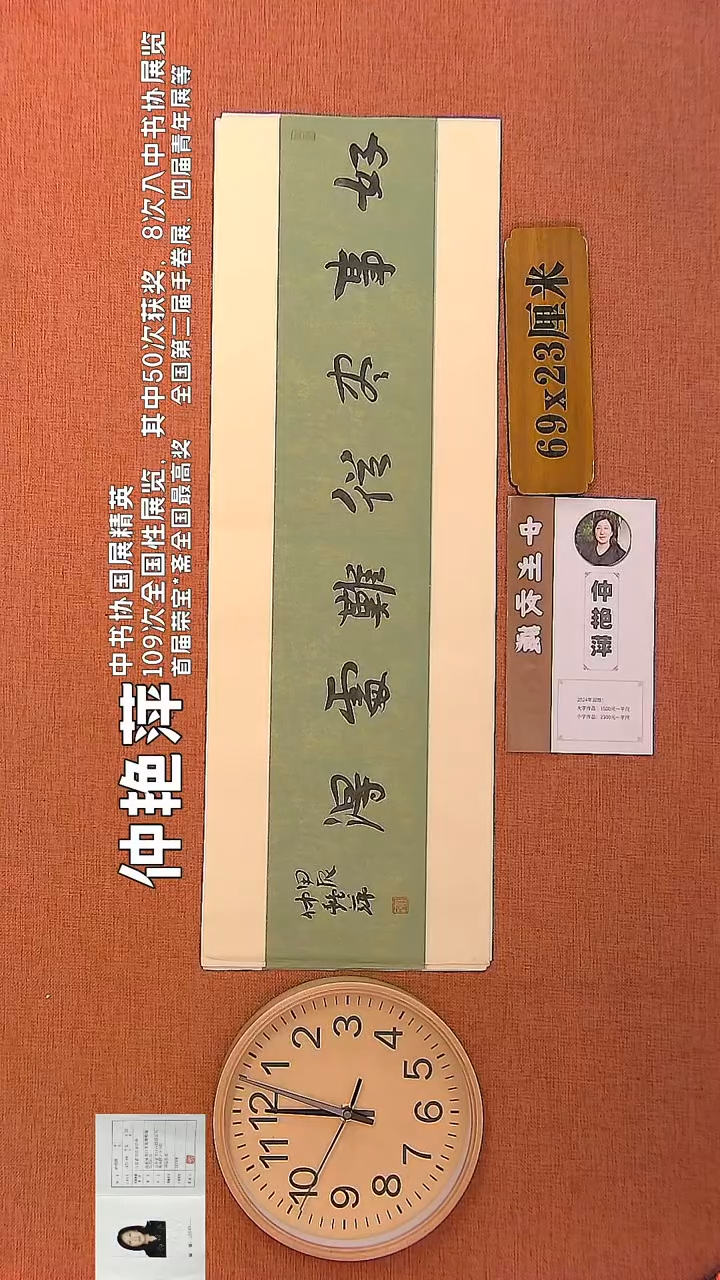 仲艳萍
中书协国展精英
109次全国性展览，其中50次获奖，8次入中书协展览
首届荣宝*斋全国最高奖 全国第二届手卷展、四届青年展等
好事尽從難處得
甲辰
仲艳萍
69x23厘米
仲艳萍
大字作品：1500元一平尺
小字作品：2500元一平尺
12
1
2
3
4
5
6
7
8
9
10
11